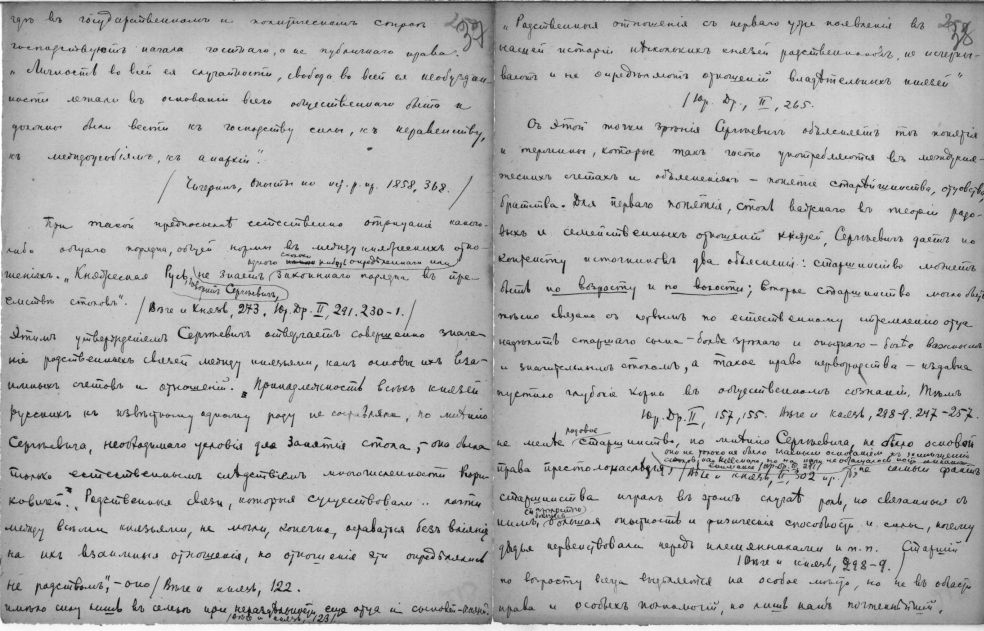 гдѣ въ государственномъ и политическомъ строѣ
господствуютъ начала частнаго, а не публичнаго права.
„Личность во всей ея случайности, свобода во всей ея необуздан-
ности лежали въ основаніи всего общественнаго быта и
должны были вести къ господству силы, къ неравенству,
къ междоусобіямъ, къ анархіи".
/Чичеринъ, Опыты по ист. р. пр. 1858, 368./
При такой предпосылкѣ естественно отрицаніе какого-
либо общаго порядка, общей нормы въ междукняжескихъ отно-
шеніяхъ. „Княжеская Русь, не знаетъ одного сколько нибудь опредѣленнаго или законнаго порядка въ пре-
говоритъ Сергѣевичъ,
емствѣ столовъ".
/Вѣче и Князь, 273. Юр. Др. II, 291. 230-1./
Этимъ утвержденіемъ Сергѣевичъ отвергаетъ совершенно значе-
ніе родственныхъ связей между князьями, какъ основы ихъ вза-
имныхъ счетовъ и отношеній. „Принадлежность всѣхъ князей
русскихъ къ извѣстному одному роду не составляла, по мнѣнію
Сергѣевича, необходимаго условія для занятія стола, – она была
только естественнымъ слѣдствіемъ многочисленности Рюри-
ковичей". „Родственныя связи, которыя существовали .. почти
между всѣми князьями, не могли, конечно, остаться безъ вліянія
на ихъ взаимныя отношенія, но отношенія эти опредѣлялись
не родствомъ", – оно /Вѣче и князь, 122.
имѣло силу лишь въ семьѣ при нераздѣльности еще отца и сыновей
/Вѣче и князь, 123/
258
38
„Родственныя отношенія съ перваго уже появленія въ
нашей исторіи нѣсколькихъ князей родственниковъ, не исчерпы-
ваютъ и не опредѣляютъ отношеній владѣтельныхъ князей"
/Юр. Др., II, 265.
Съ этой точки зрѣнія Сергѣевичъ объясняетъ тѣ понятія
и термины, которые такъ часто употребляются въ междукня-
жескихъ счетахъ и объясненіяхъ – понятіе старѣйшинства, отцовства,
братства. Для перваго понятія, столь важнаго въ теоріи родо-
выхъ и семейственныхъ отношеній князей, Сергѣевичъ даетъ по
контексту источниковъ два объясненія: старшинство можетъ
быть по возрасту и по волости; второе старшинство могло быть
тѣсно связано съ первымъ по естественному стремленію отца
надѣлить старшаго сына – болѣе зрѣлаго и опытнаго – болѣе важнымъ
и значительнымъ столомъ, а такое право первородства – издавна
пустило глубокіе корни въ общественномъ сознаніи. Тѣмъ
Юр. Др. II, 157, 155. Вѣче и князь, 298-9. 247-257.
не менѣе родовое старшинство, по мнѣнію Сергѣевича, не было основой
права престолонаслѣдія, /Вѣче и князь, 302 пр./ не самый фактъ
старшинства игралъ въ этомъ случаѣ роль, но связанныя съ
нимъ, большая опытность и физическія способности и силы, почему
дядья первенствовали передъ племянниками и т.п. Старшій
/Вѣче и князь, 298-9./
по возрасту всегда выдвигается на особое мѣсто, но не въ области
права и особыхъ полномочій, но лишь какъ почтеннѣйшій,